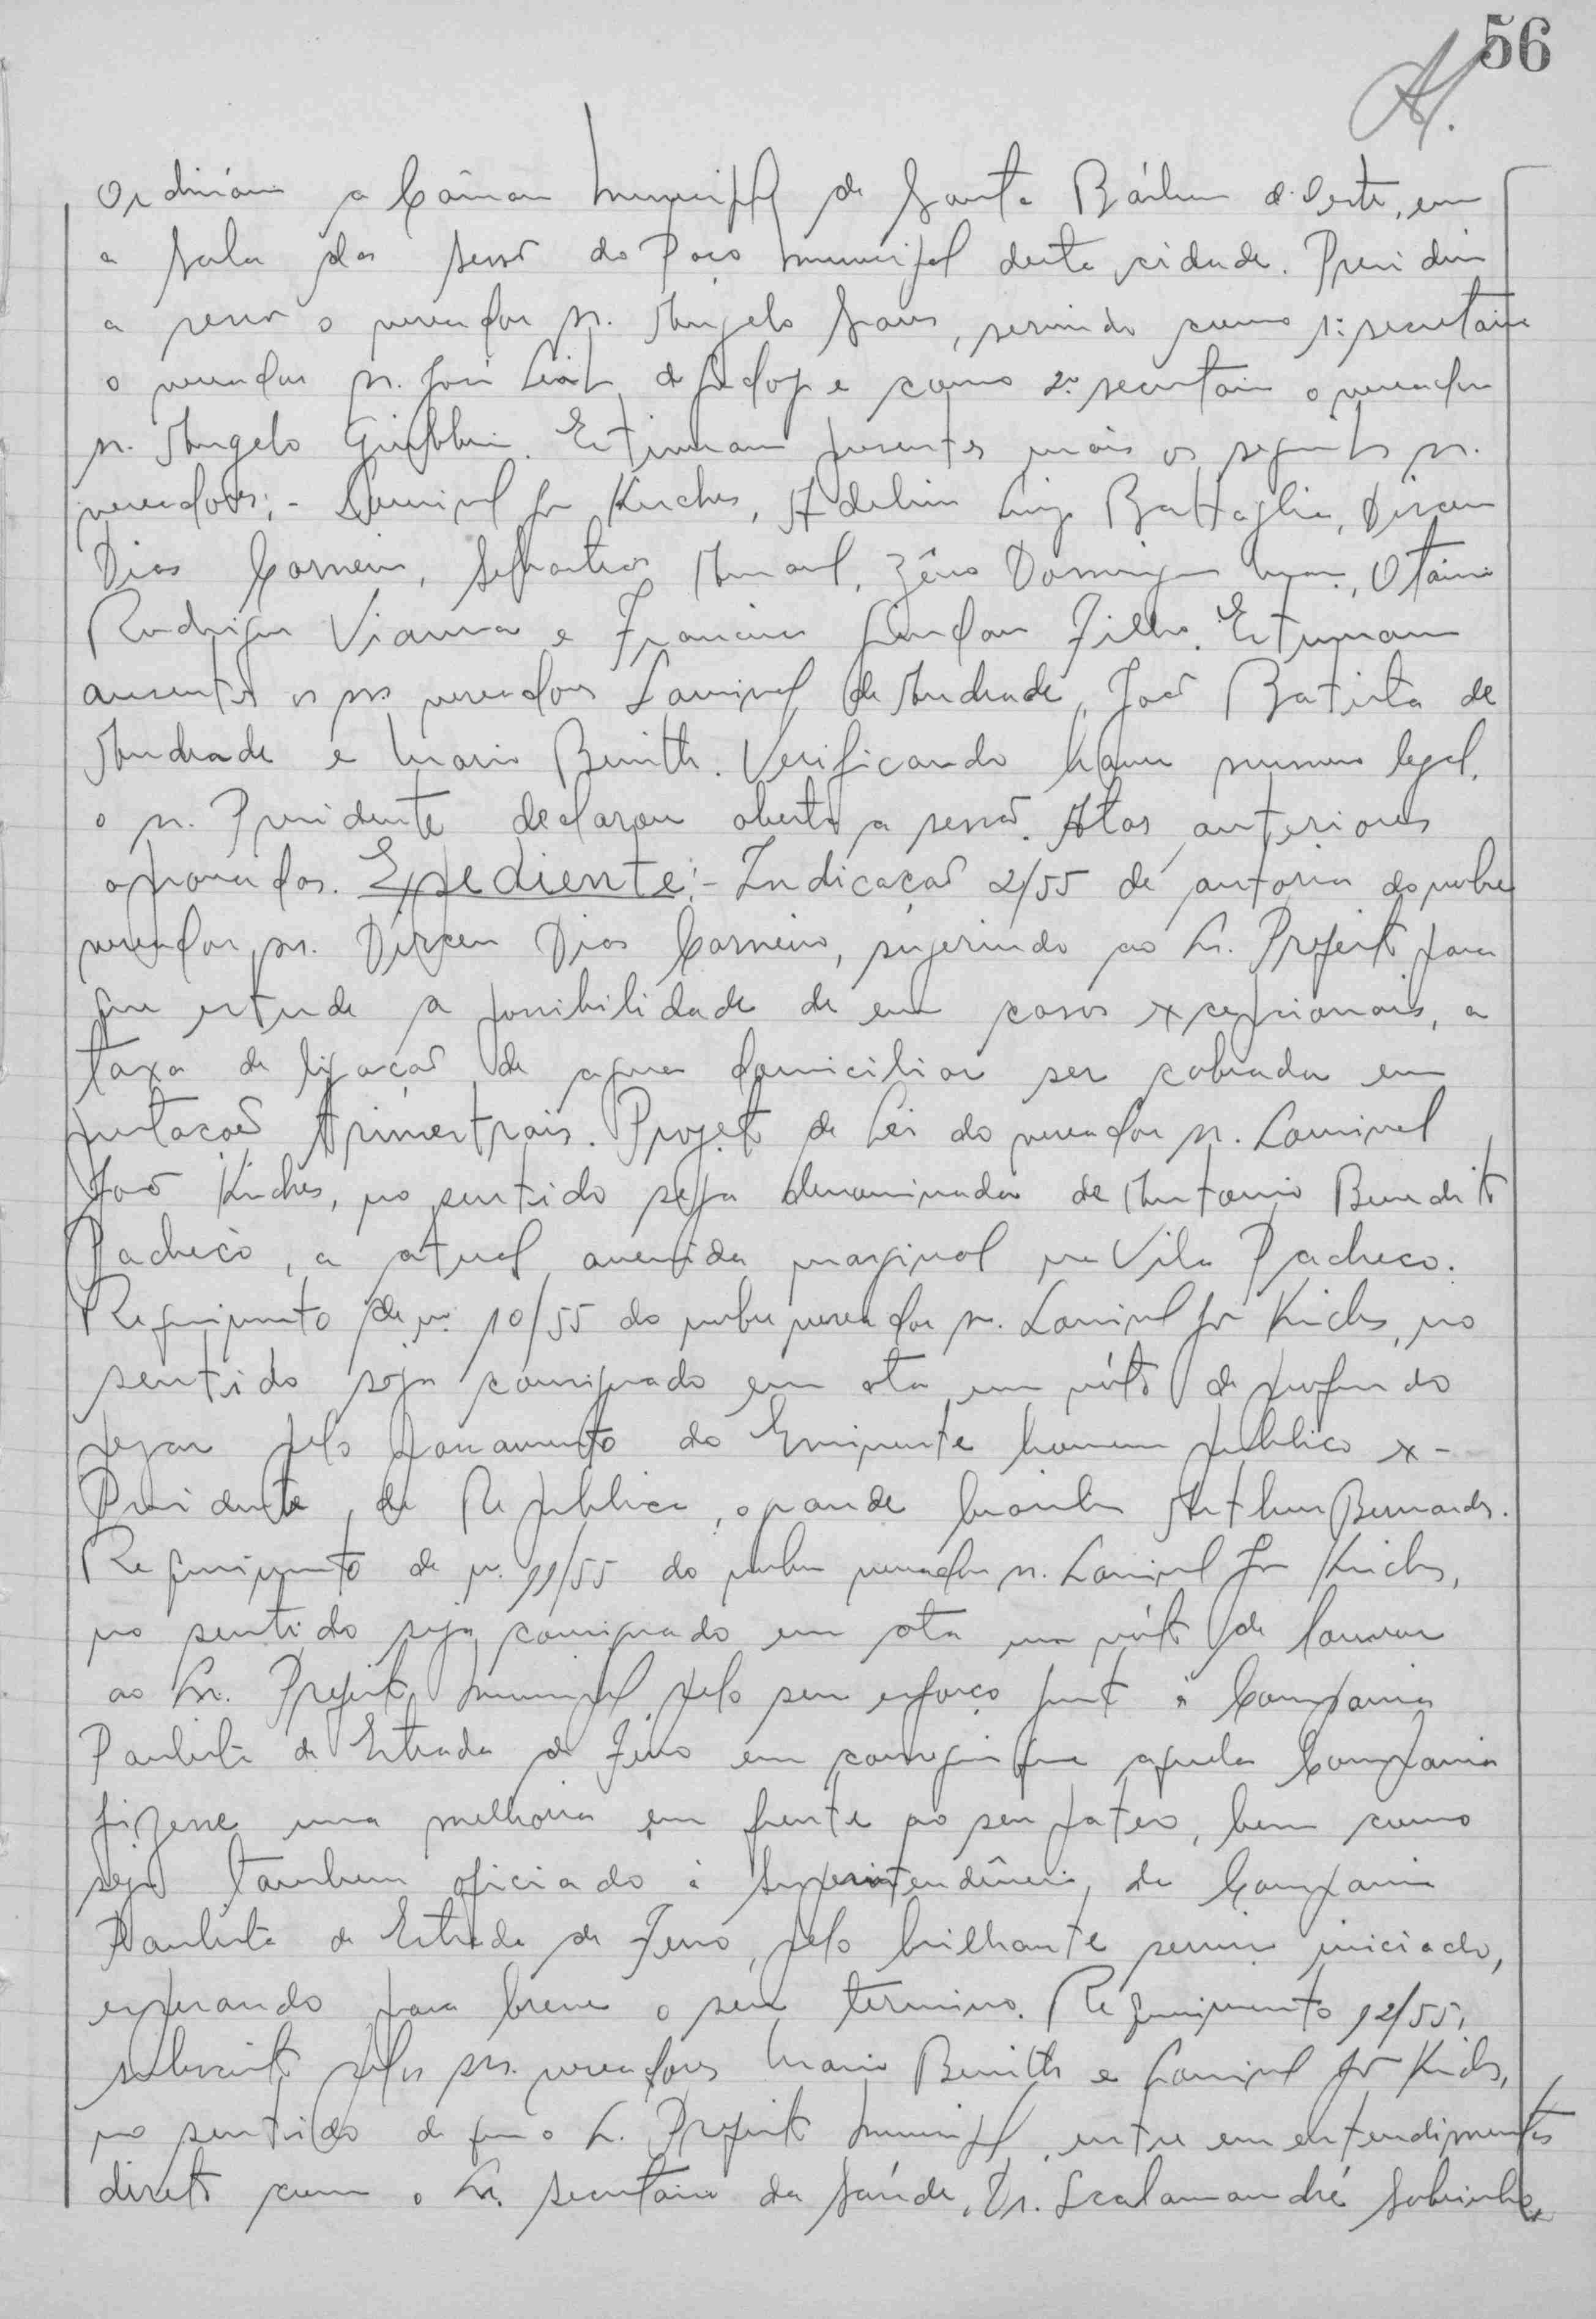 56
Ordinária a Câmara Municipal de Santa Bárbara d'Oeste, em
a sala das sessões do Paço Municipal desta cidade. Presidiu
a sessão o vereador sr. Angelo, servindo como 1º secretário
o vereador sr. José de Godoy e como 2º secretário o vereador
sr. Angelo Giubbini. Estiveram presentes mais os seguintes srs.
vereadores:- Lourival João Kirches, Adelino Luiz Battaglia, Dirceu
Dias Carneiro, Sebastião Amaral, Zêno Domingos Maia, Otávio
Rodrigues Vianna e Francisco Filho. Estiveram
ausentes os srs. vereadores Lourival de Andrade, João Batista de
Andrade e Mario Benith. Verificando haver numero legal,
o sr. Presidente declarou aberta a sessão. Atas anteriores
aprovadas. Expediente:- Indicação 2/55 de autoria do nobre
vereador sr. Dirceu Dias Carneiro, sugerindo ao Sr. Prefeito para
que estude a possibilidade de em casos excepcionais, a
taxa de ligação de agua domiciliar ser cobrada em
prestações trimestrais. Projeto de Lei do vereador sr. Lourival
João Kirches, no sentido seja denominada de Antonio Benedito
Pacheco, a atual avenida marginal na Vila Pacheco.
Requerimento de nº 10/55 do nobre vereador sr. Lourival João Kirches, no
sentido seja consignado em ata um vóto de profundo
pezar pelo passamento do Eminente homem publico ex-
Presidente da Republica, o grande brasileiro Arthur Bernardes.
Requerimento de nº 11/55 do nobre vereador sr. Lourival João Kirches,
no sentido seja consignado em ata um vóto de louvor
ao Sr. Prefeito Municipal, pelo seu esforço junto á Companhia
Paulista de Estrada de Ferro em conseguir que aquela Companhia
fizesse uma melhoria em frente ao seu pateo, bem como
seja tambem oficiado á Superintendência da Companhia
Paulista de Estrada de Ferro, pelo brilhante serviço iniciado,
esperando para breve o seu termino. Requerimento 12/55,
subscrito pelos srs. vereadores Mario Benith e Lourival João Kirches,
no sentido de que o Sr. Prefeito Municipal, entre em entendimentos
direto com o Sr. Secretário da Saúde, Dr. Scalamandré Sobrinho,